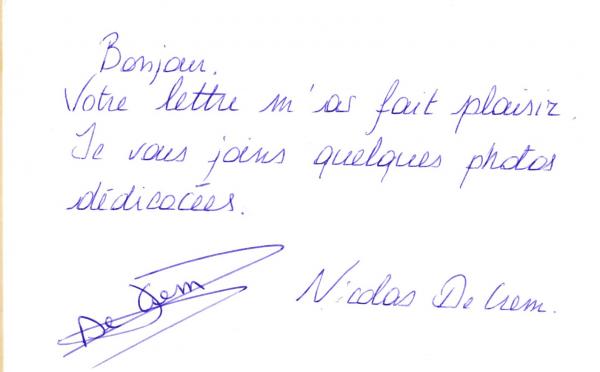 Bonjour.
Votre lettre m'a fait plaisir.
Je vous joins quelques photos
dédicacées.
De Crem
Nicolas De Crem.